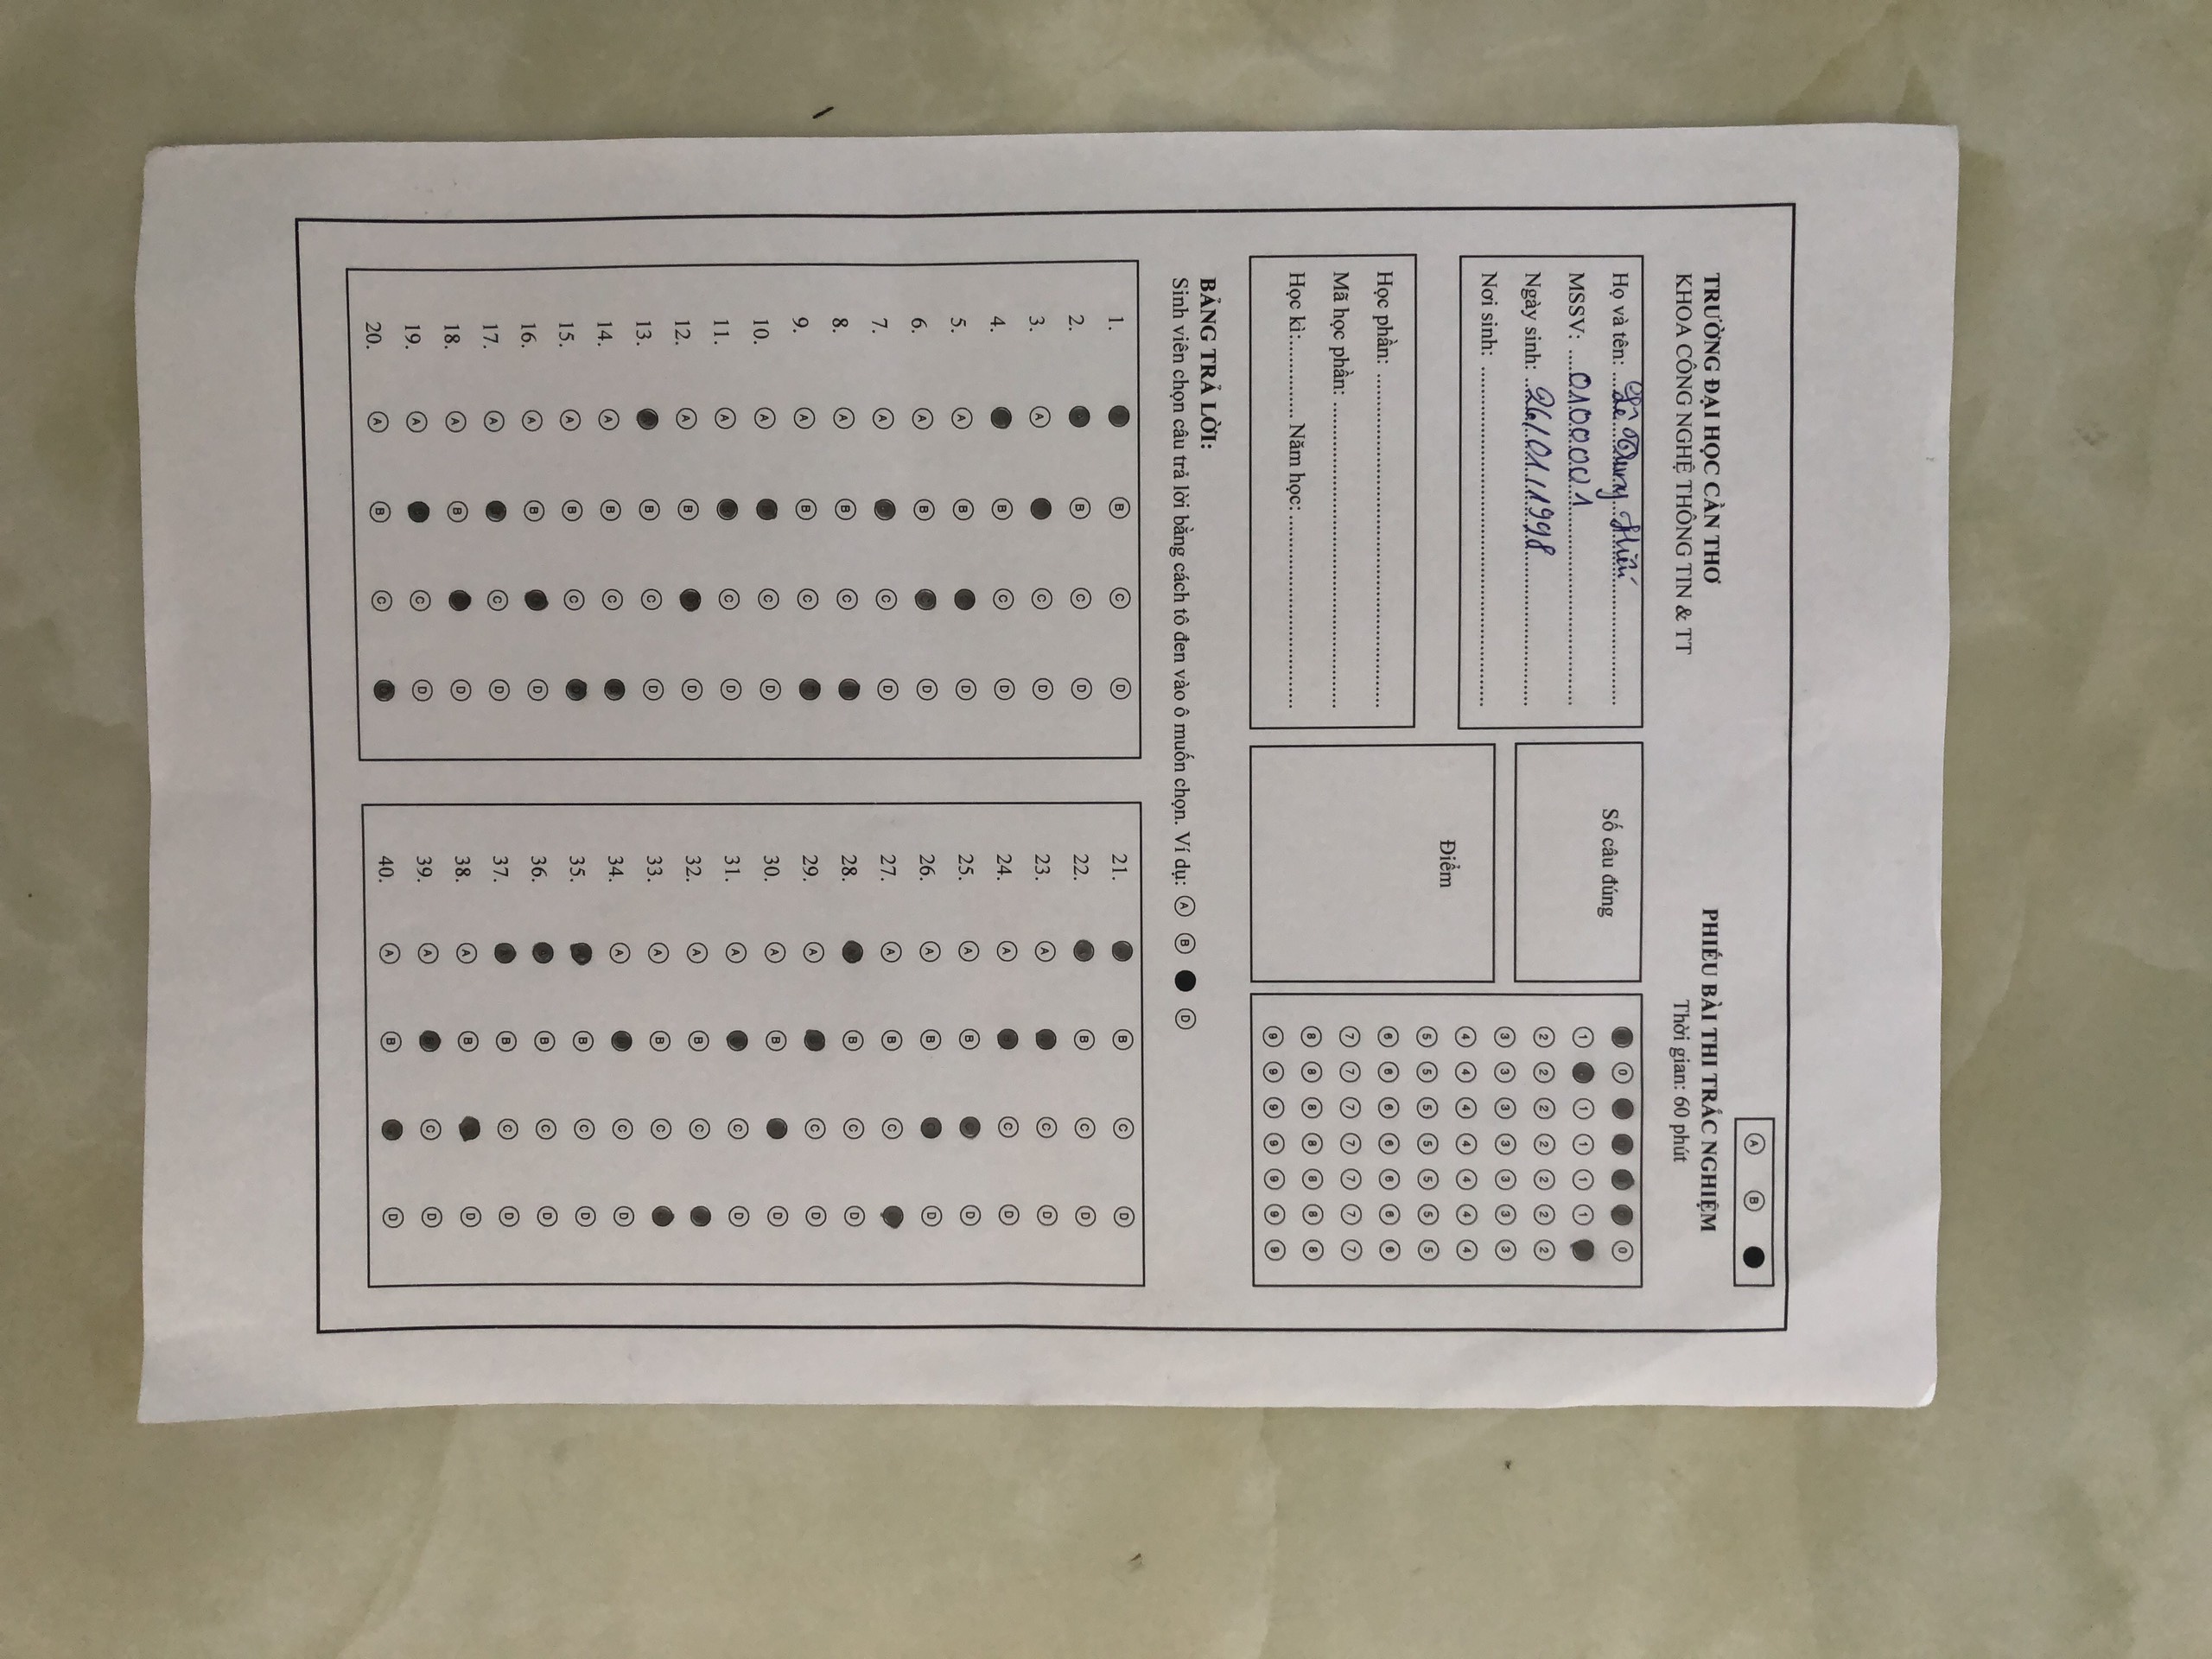 TRƯỜNG ĐẠI HỌC CẦN THƠ
KHOA CÔNG NGHỆ THÔNG TIN & TT
PHIẾU BÀI THI TRẮC NGHIỆM
Thời gian: 60 phút
A B
Họ và tên: Lê Duy Hiếu
MSSV: 0100001
Ngày sinh: 26/01/1998
Nơi sinh:
Số câu đúng
Học phần:
Mã học phần:
Học kì: Năm học:
Điểm
0 0
1 1 1 1 1
2 2 2 2 2 2 2
3 3 3 3 3 3 3
4 4 4 4 4 4 4
5 5 5 5 5 5 5
6 6 6 6 6 6 6
7 7 7 7 7 7 7
8 8 8 8 8 8 8
9 9 9 9 9 9 9
BẢNG TRẢ LỜI:
Sinh viên chọn câu trả lời bằng cách tô đen vào ô muốn chọn. Ví dụ: A B D
1. B C D
2. B C D
3. A C D
4. B C D
5. A B D
6. A B D
7. A C D
8. A B C
9. A B C
10. A C D
11. A C D
12. A B D
13. B C D
14. A B C
15. A B C
16. A B D
17. A C D
18. A B D
19. A C D
20. A B C
21. B C D
22. B C D
23. A C D
24. A C D
25. A B D
26. A B D
27. A B C
28. B C D
29. A C D
30. A B D
31. A C D
32. A B C
33. A B C
34. A C D
35. B C D
36. B C D
37. B C D
38. A B D
39. A C D
40. A B D